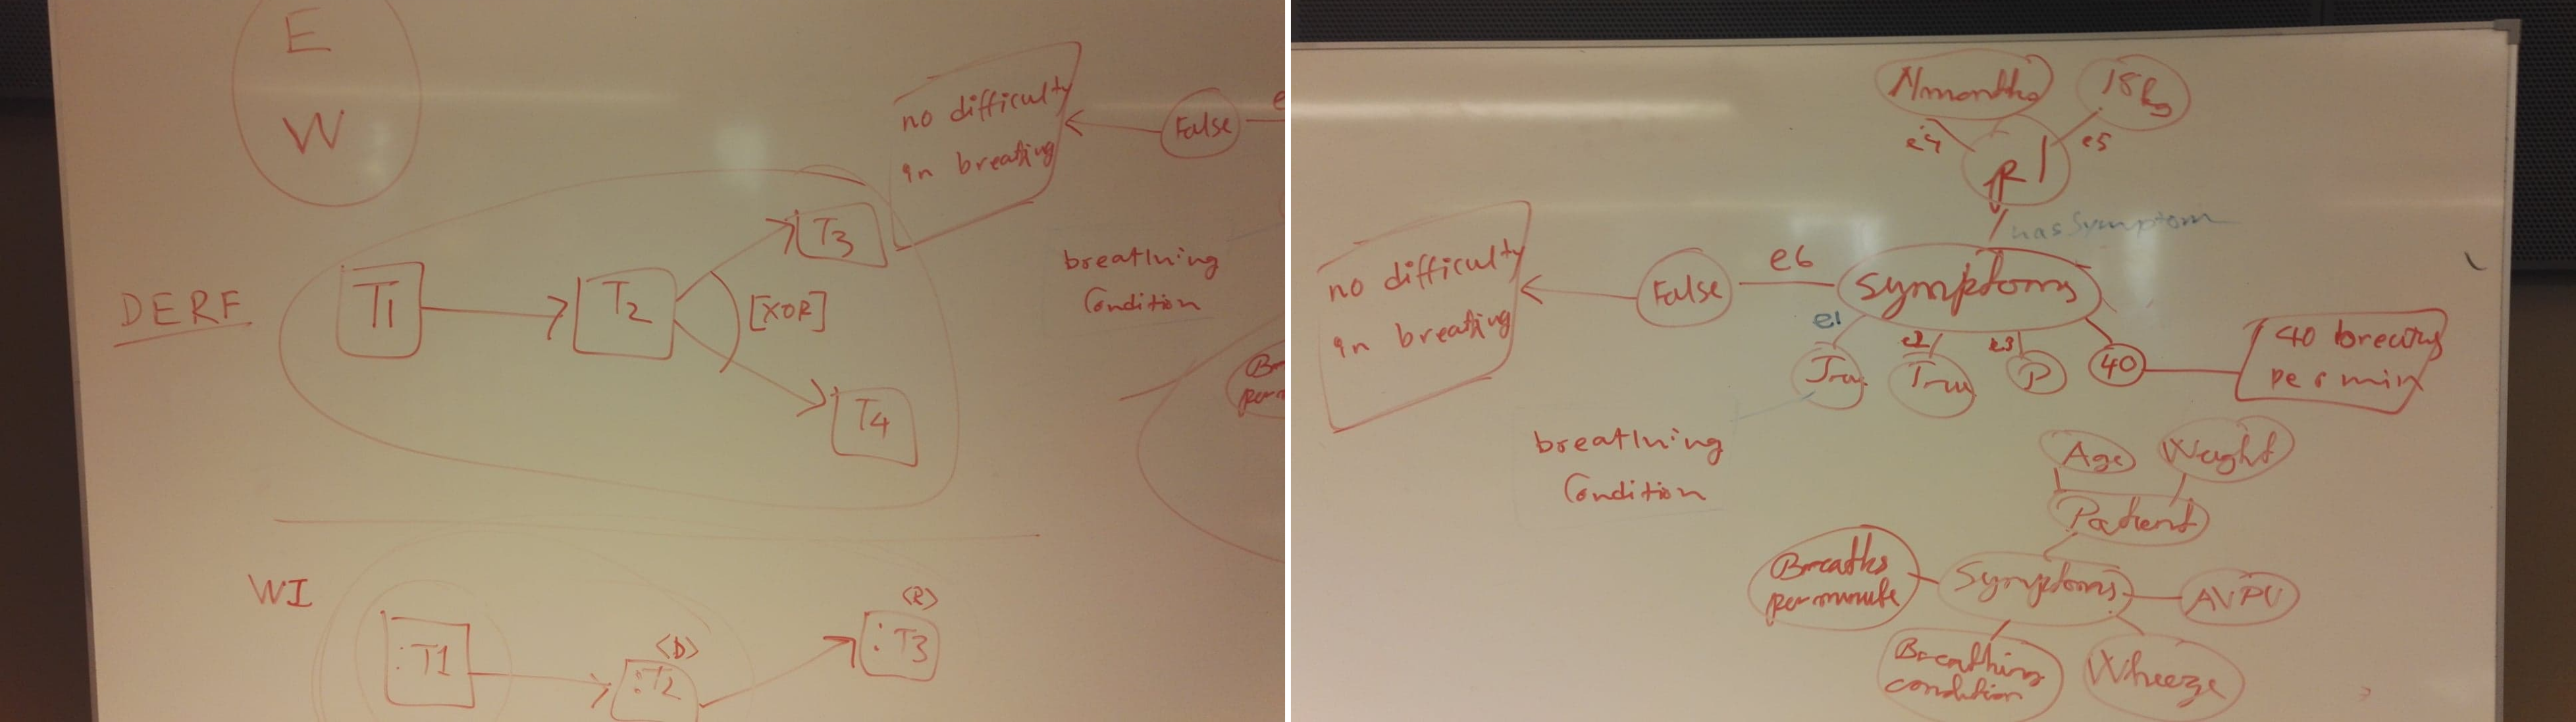 E
W
no difficulty
in breathing
False
e
DERF
T1
T2
T3
[XOR]
T4
breathning
Condition
WI
:T1
<D>
:T2
<R>
:T3
e5
hasSymptom
no difficulty
in breathing
False
e6
Symptoms
e1
e2
e3
P
40
40 breaths
per min
breathning
Condition
Age
Weight
Patient
Breaths
per minute
Symptoms
AVPU
Breathing
condition
Wheeze